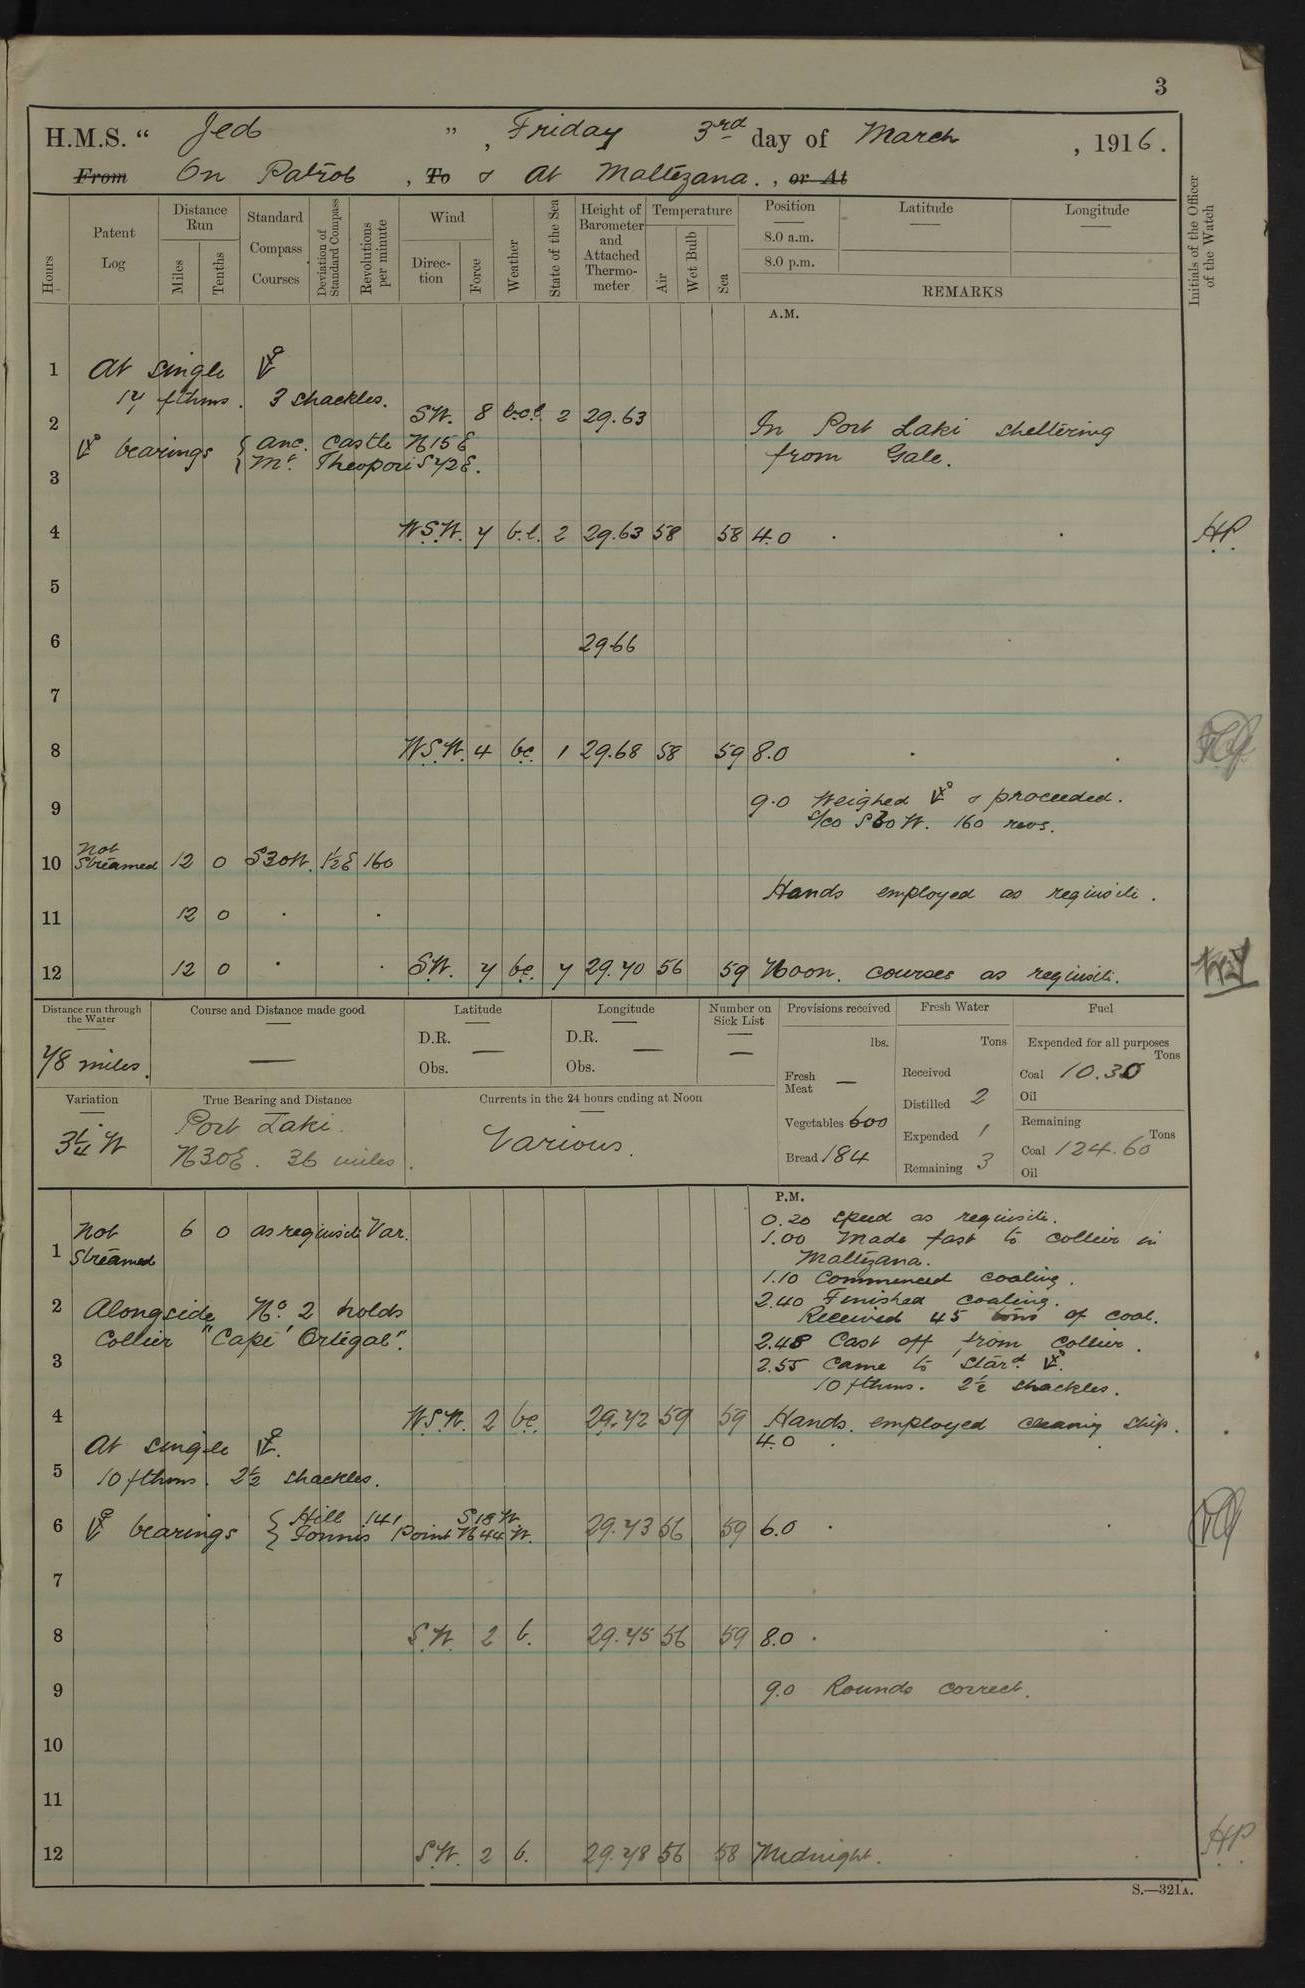 3
H.M.S. “ Jed ” , Friday 3rd day of March , 1916.
From On Patrol , To & At Maltezana. , or At
Hours
Patent Log
Distance Run
Miles
Tenths
Standard Compass Courses
Deviation of Standard Compass
Revolutions per minute
Wind
Direction
Force
Weather
State of the Sea
Height of Barometer and Attached Thermometer
Temperature
Air
Wet Bulb
Sea
Position
8.0 a.m.
8.0 p.m.
Latitude —
Longitude —
REMARKS
Initials of the Officer of the Watch
A.M.
1 At single
17 fthms. 3 shackles.
2 S.W. 8 b.c.l. 2 29.63 In Port Laki sheltering
bearings { Anc. Castle N15E from Gale.
Mt. Theopori S72E.
3
4 W.S.W. 7 b.c. 2 29.63 58 58 4.0 H.P.
5
6 29.66
7
8 W.S.W. 4 bc. 1 29.68 58 59 8.0
9 9.0 Weighed & proceeded.
S/co S30W. 160 revs.
10 Not Streamed 12 0 S30W. 1½E 160
Hands employed as requisite.
11 12 0
12 12 0 S.W. 7 bc. 7 29.70 56 59 Noon. courses as requisite.
Distance run through the Water
78 miles.
Course and Distance made good
—
Latitude
D.R. —
Obs.
Longitude
D.R. —
Obs.
Number on Sick List
—
Provisions received
lbs.
Fresh Meat —
Vegetables 600
Bread 184
Fresh Water
Tons
Received
Distilled 2
Expended 1
Remaining 3
Fuel
Expended for all purposes
Tons
Coal 10.30
Oil
Remaining
Tons
Coal 124.60
Oil
Variation
3¼ W
True Bearing and Distance
Port Laki.
N30E. 36 miles.
Currents in the 24 hours ending at Noon
Various.
P.M.
0.20 speed as requisite.
1 Not Streamed 6 0 as requisite Var. 1.00 Made fast to collier in
Maltezana.
1.10 Commenced coaling.
2 Alongside No. 2 holds 2.40 Finished coaling.
Received 45 tons of coal.
Collier "Cape Ortegal". 2.48 Cast off from collier.
3 2.55 Came to Stard.
10 fthms. 2½ shackles.
4 W.S.W. 2 bc. 29.72 59 59 Hands employed cleaning ship.
At single 4.0
5 10 fthms. 2½ shackles.
6 bearings { Hill 141 S18W. 29.73 56 59 6.0
Point N44W.
7
8 S.W. 2 b. 29.75 56 59 8.0
9 9.0 Rounds correct.
10
11
12 S.W. 2 b. 29.78 56 58 Midnight. H.P.
S.—321A.